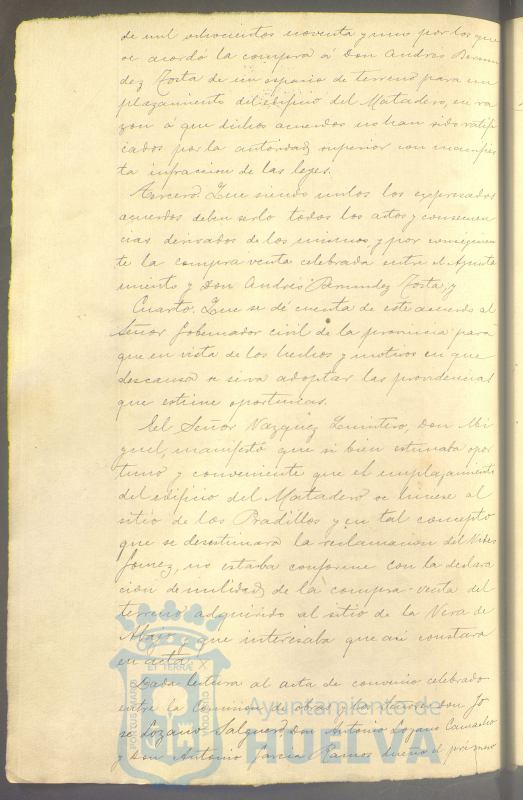 de mil ochocientos noventa y uno por los que
se acordó la compra á Don Andrés Bermu
dez Tosta de un espacio de terreno para em
plazamiento del edificio del Matadero, en ra
zon á que dichos acuerdos no han sido ratifi
cados por la autoridad superior con manifies
ta infraccion de las leyes.
Tercero. Que siendo nulos los expresados
acuerdos deben serlo todos los actos y consecuen
cias derivados de los mismos, y por consiguien
te la compra venta celebrada entre el Ayunta
miento y Don Andrés Bermudez Tosta, y
Cuarto. Que se dé cuenta de este acuerdo al
Señor Gobernador civil de la provincia para
que en vista de los hechos y motivos en que
descansa se sirva adoptar las providencias
que estime oportunas.
El Señor Vazquez Quintero, Don Mi
guel, manifestó que si bien estimaba opor
tuno y conveniente que el emplazamiento
del edificio del Matadero se hiciese al
sitio de los Pradillos y en tal concepto
que se desestimara la reclamacion del
Gomez, no estaba conforme con la declara
cion de nulidad de la compra-venta del
terreno adquirido al sitio de la Vera de
y que interesaba que asi constara
en acta.
Dada lectura al acta de convenio celebrado
entre la Comision de obras, los Señores Don Jo
sé Lozano Salguero, Don Antonio Lozano Camacho
y Don Antonio Garcia Ramos dueño el primero
PORTUS MARIS
ET TERRAE
CUSTODIA
Ayuntamiento de
HUELVA